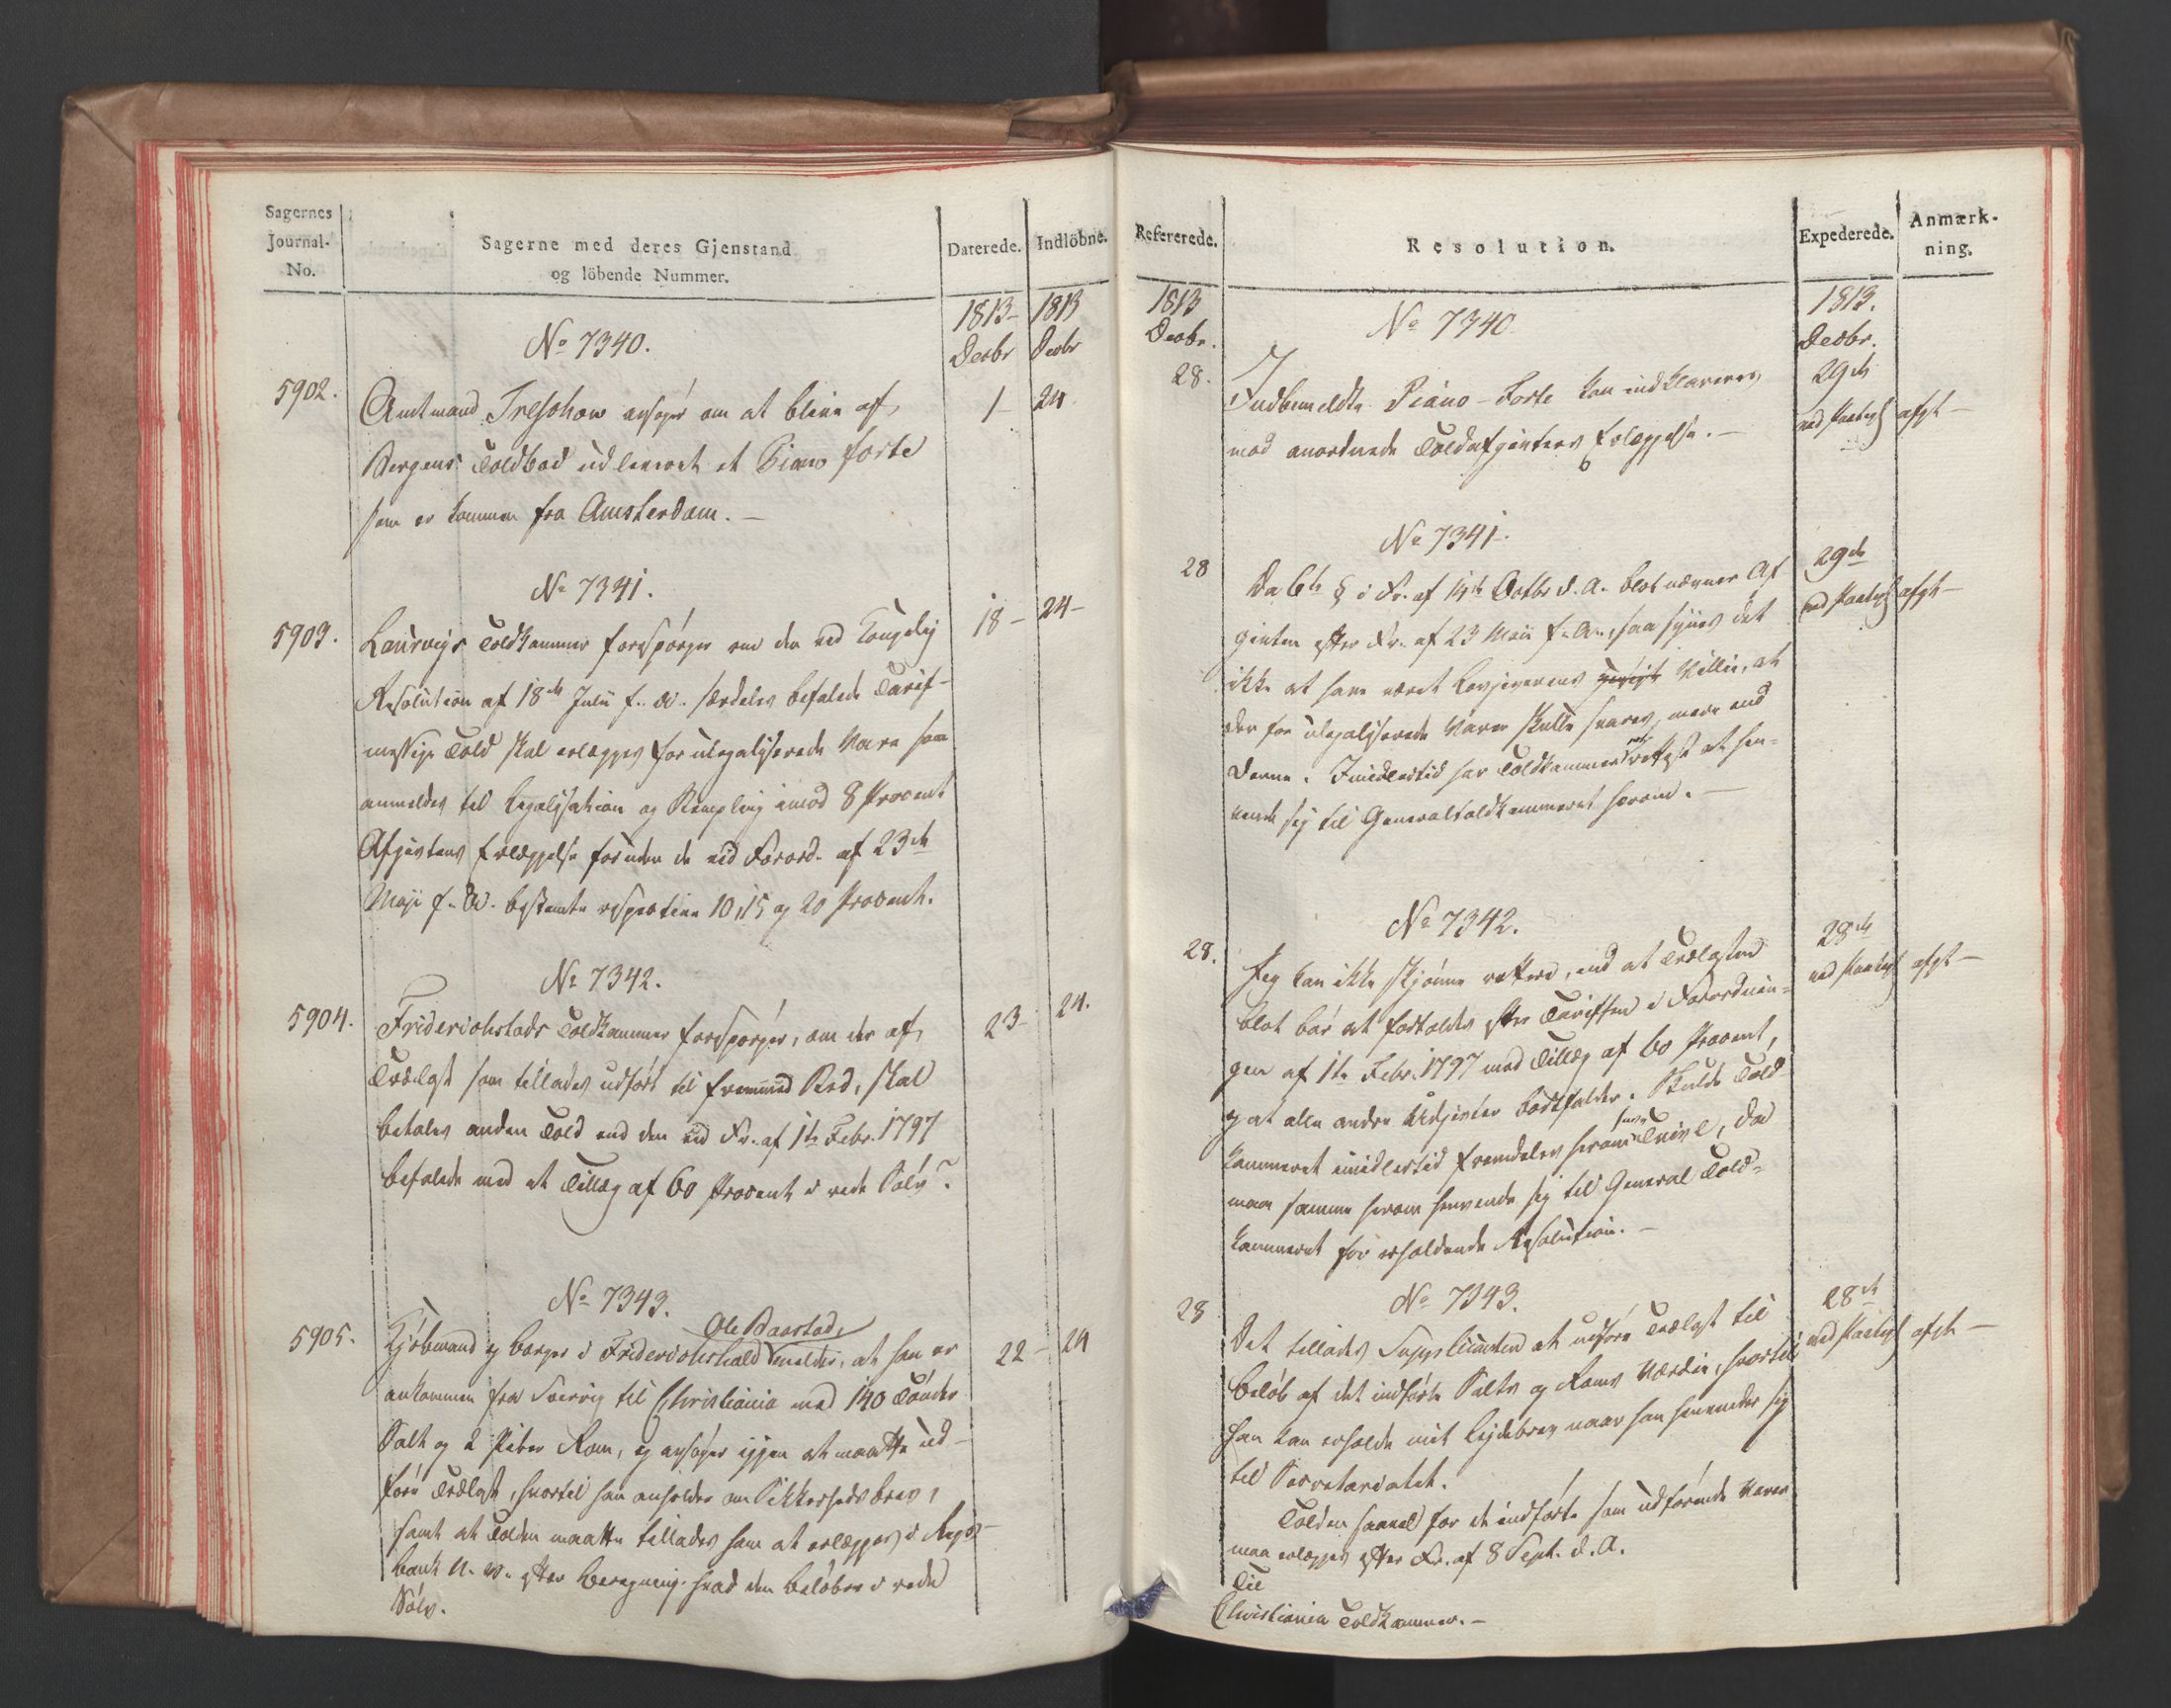 Sagernes
Journal-
No.
Sagerne med deres Gjenstand
og löbende Nummer.
Daterede.
Indlöbne.
1813-
Decbr
1813
Decbr
No 7340.
5902.
Amtmand Treschow ansøger om at blive af
1-
24
Bergens Toldbod udleveret et Piano forte
som er kommen fra Amsterdam. -
No 7341.
5903.
Laurvigs Toldkammer forespørger om den ved Kongelig
18-
24-
Resolution af 18de Julii f. A. særdeles befalede Tarif-
mæssige Told skal erlægges for ulegaliserede Vare som
anmeldes til Legalisation og Stempling imod 8 Procent
Afgivtens Erlæggelse foruden de ved Forord. af 23de
Maji f. A. bestemte respective 10, 15 og 20 Procent.
No 7342.
5904.
Friderichstads Toldkammer forespørger, om der af
23-
24.
Trælast som tillades udført til fremmed Sted, skal
betales anden Told end den ved Fr. af 1te Febr. 1797
befalede med et Tillæg af 60 Procent i rede Sølv?
No 7343.
Ole Baastad,
5905.
Kjøbmand og borger i Friderichshald melder, at han er
22-
24
ankommen fra til Christiania med 140 Tønder
Salt og 2 Piber Rom, og ansøger igjen at maatte ud-
føre Trælast, hvortil han anholder om Sikkerhedsbrev,
samt at Tolden maatte tillades ham at erlægges i Rigs-
bank N. V. efter Beregning hvad den beløber i rede
Sølv.
Refererede.
Resolution.
Expederede.
Anmærk-
ning.
1813
Decbr.
1813.
Decbr.
No 7340
28.
29de
Indbemeldte Piano-Forte kan indklareres
ved Paategn
afgt-
mod anordnede Toldafgivters Erlæggelse. -
No 7341.
28
29de
Da 6te § i Fr. af 14de Octbr d. A. blot nævner Af
ved Paategn
afgt-
givten efter Fr. af 23 Maii f. A., saa synes det
ikke at have været Lovgiverens Villie, at
der for ulegaliserede Varer skulle svares mere end
denne. Imidlertid har Toldkammeret rettest at hen-
vende sig til Generaltoldkammeret herom. -
No 7342.
28.
28de
Jeg kan ikke skjønne rettere, end at Trælasten
ved Paategn
afgt-
blot bør at fortoldes efter Tariffen i Forordnin-
gen af 1te Febr. 1797 med Tillæg af 60 Procent,
og at alle andre Udgivter bortfalder. Skulde Told-
kammeret imidlertid fremdeles herom have Tvivl, da
maa samme herom henvende sig til General Told-
kammeret for erholdende Resolution. -
No 7343.
28
28de
Det tillades Supplicanten at udføre Trælast til
ved Paategn
afgt-
Beløb af det indførte Salts og Roms Værdie, hvortil
han kan erholde mit Lejdebrev naar han henvender sig
til Secretariatet.
Tolden saavel for de indførte som udførende Varer
maa erlægges efter Fr. af 8 Sept. d. A.
Til
Christiania Toldkammer. -